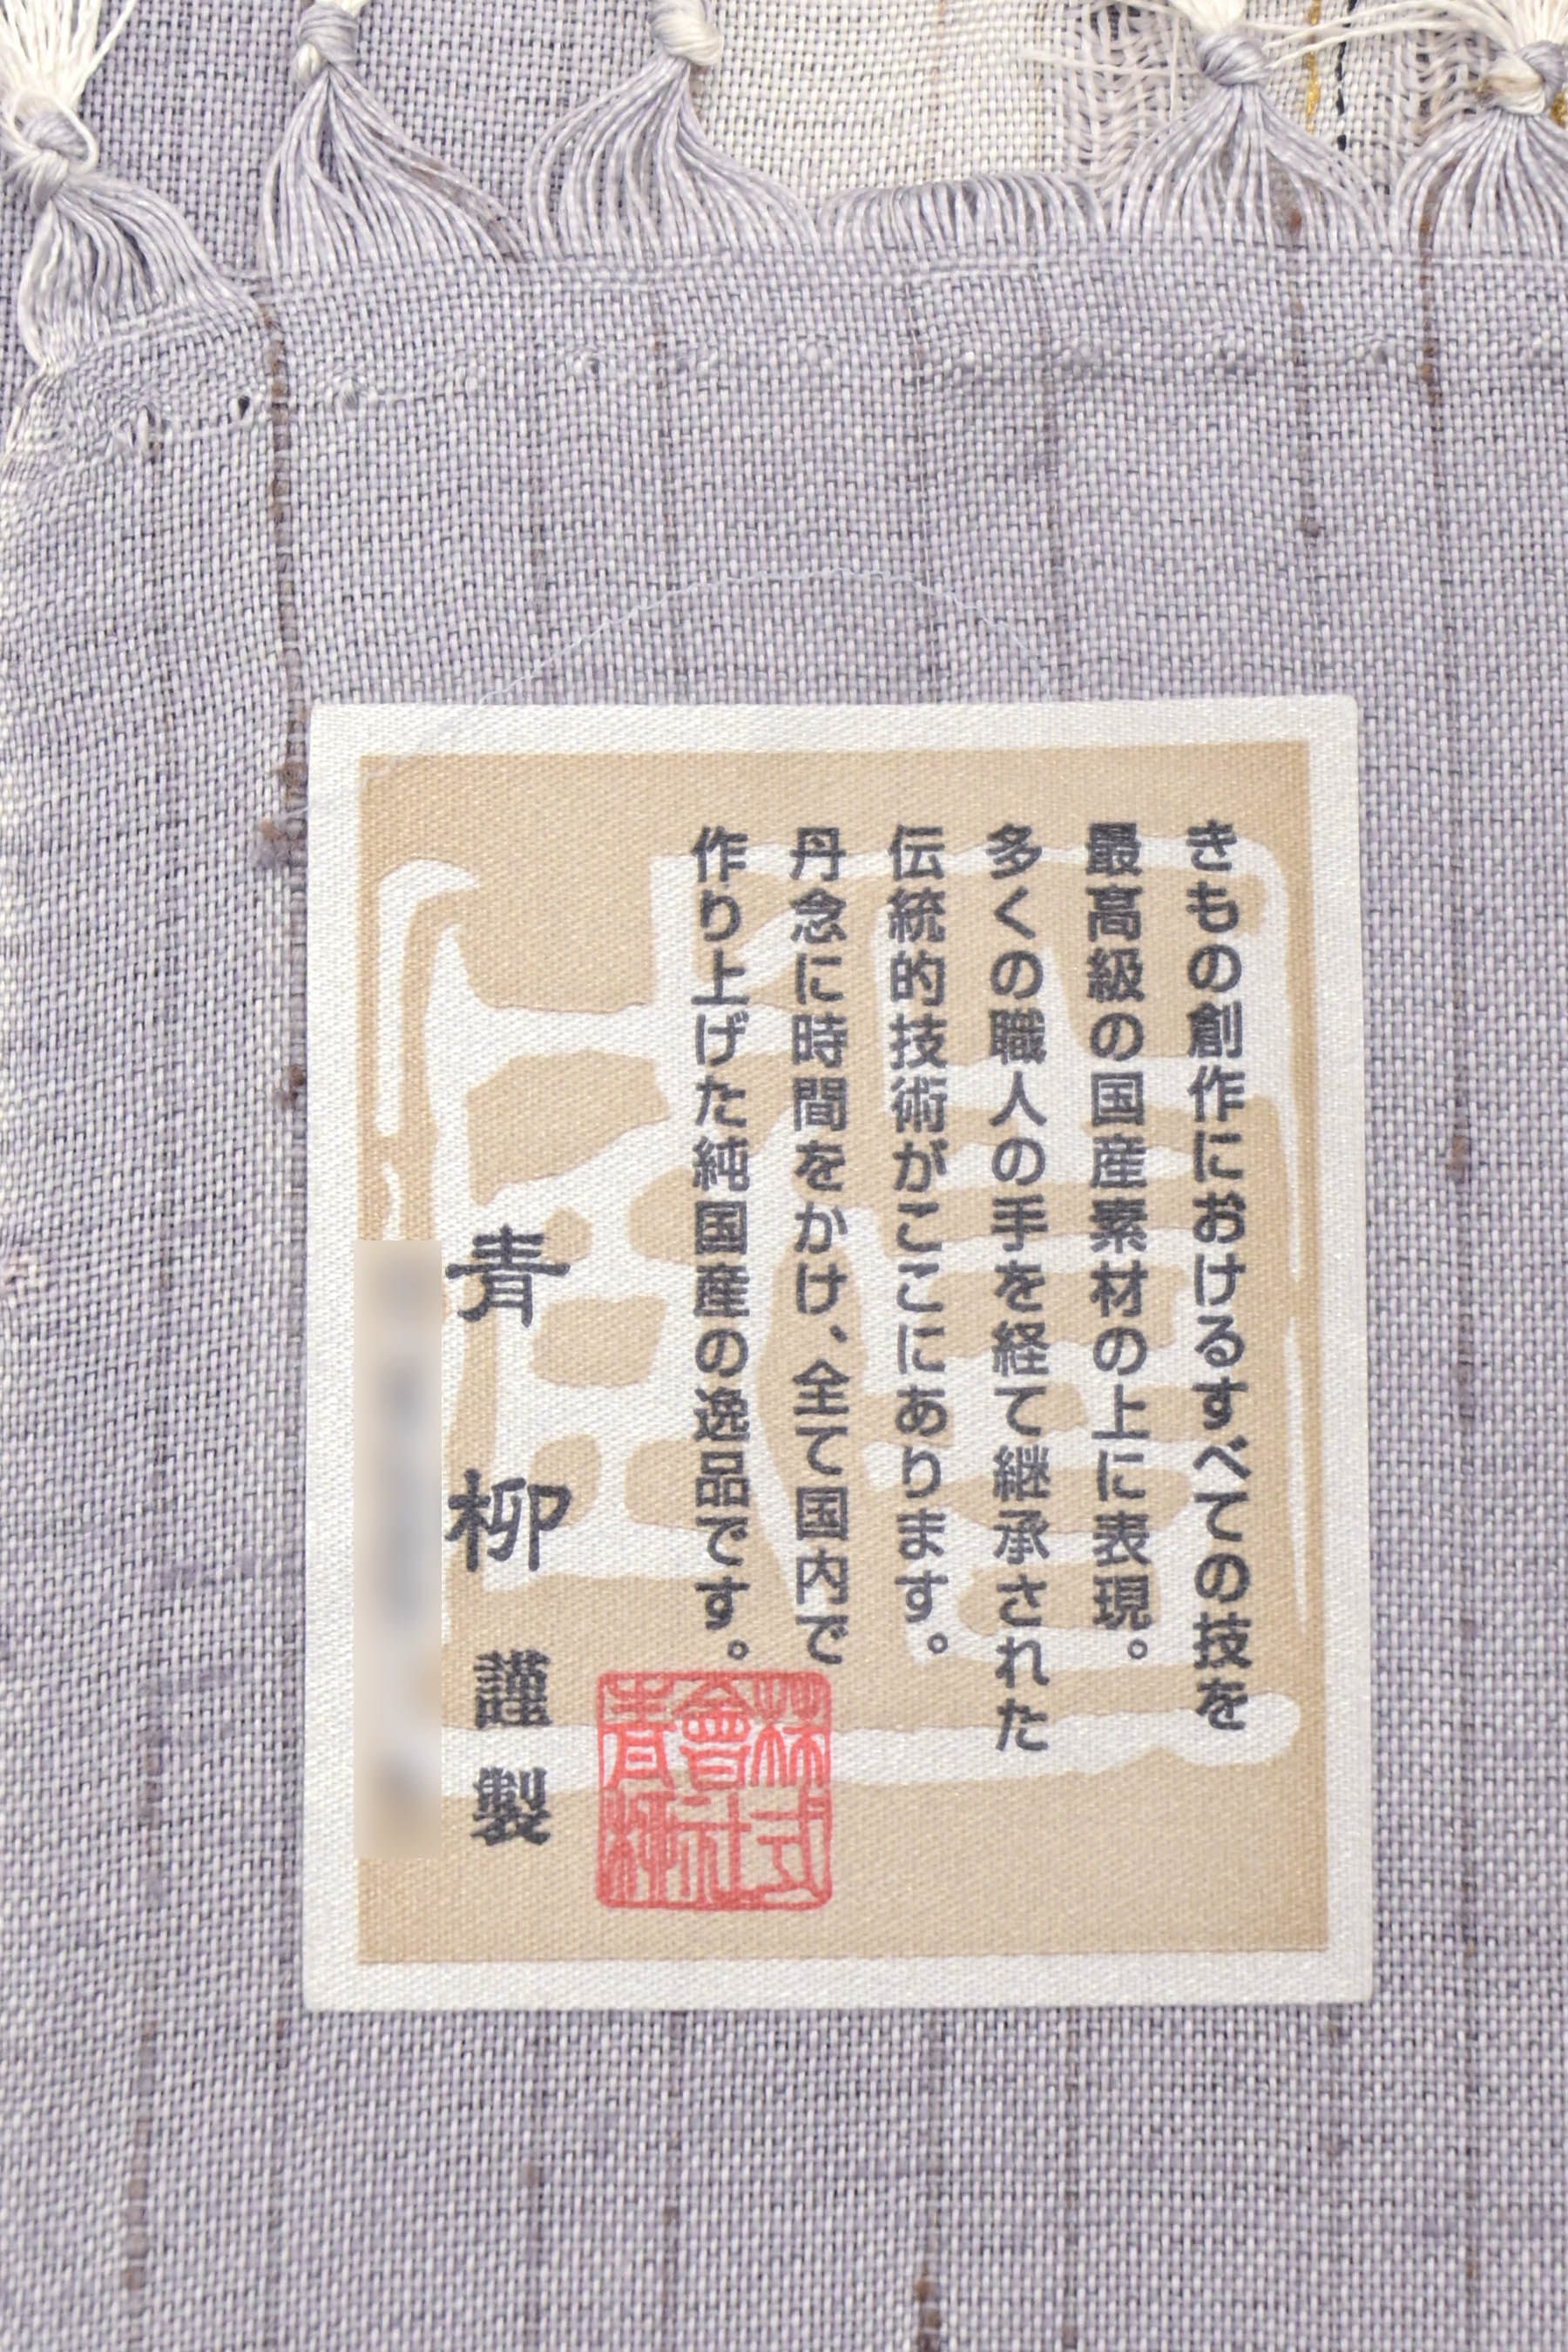 きもの創作におけるすべての技を
最高級の国産素材の上に表現。
多くの職人の手を経て継承された
伝統的技術がここにあります。
丹念に時間をかけ、全て国内で
作り上げた純国産の逸品です。
青柳謹製
株式會社青柳